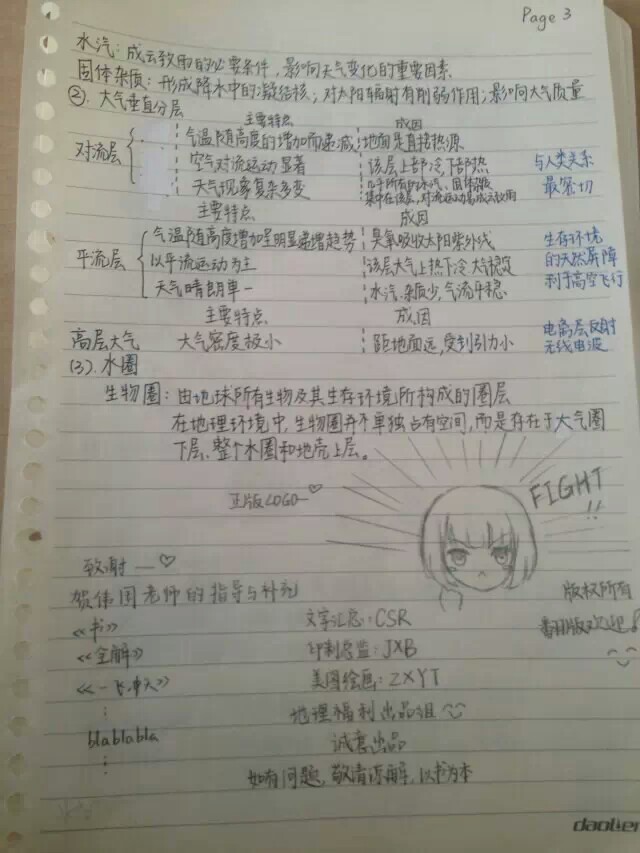 Page 3
水汽：成云致雨的必要条件，影响天气变化的重要因素
固体杂质：形成降水中的凝结核；对太阳辐射有削弱作用；影响大气质量
②. 大气垂直分层
主要特点 成因
气温随高度的增加而递减 地面是直接热源
对流层 空气对流运动显著 该层上部冷，下部热 与人类关系
天气现象复杂多变 几乎所有的水汽、固体杂质 最密切
集中在该层，对流运动易成云致雨
主要特点 成因
气温随高度增加呈明显递增趋势 臭氧吸收太阳紫外线 生存环境
平流层 以平流运动为主 该层大气上热下冷 大气稳定 的天然屏障
天气晴朗单一 水汽、杂质少，气流平稳 利于高空飞行
主要特点 成因
高层大气 大气密度极小 距地面远，受到引力小 电离层反射
无线电波
(3). 水圈
生物圈：由地球所有生物及其生存环境所构成的圈层
在地理环境中，生物圈并不单独占有空间，而是存在于大气圈
下层、整个水圈和地壳上层。
正版LOGO—♡
FIGHT !!
致谢 —♡
贺伟国老师的指导与补充 版权所有
《书》 文字汇总：CSR 翻版欢迎！
《全解》 印制总监：JXB
《一飞冲天》 美图绘画：ZXYT
⋮ 地理福利出品组
blablabla 诚意出品
⋮
如有问题，敬请谅解，以书为本
daolien